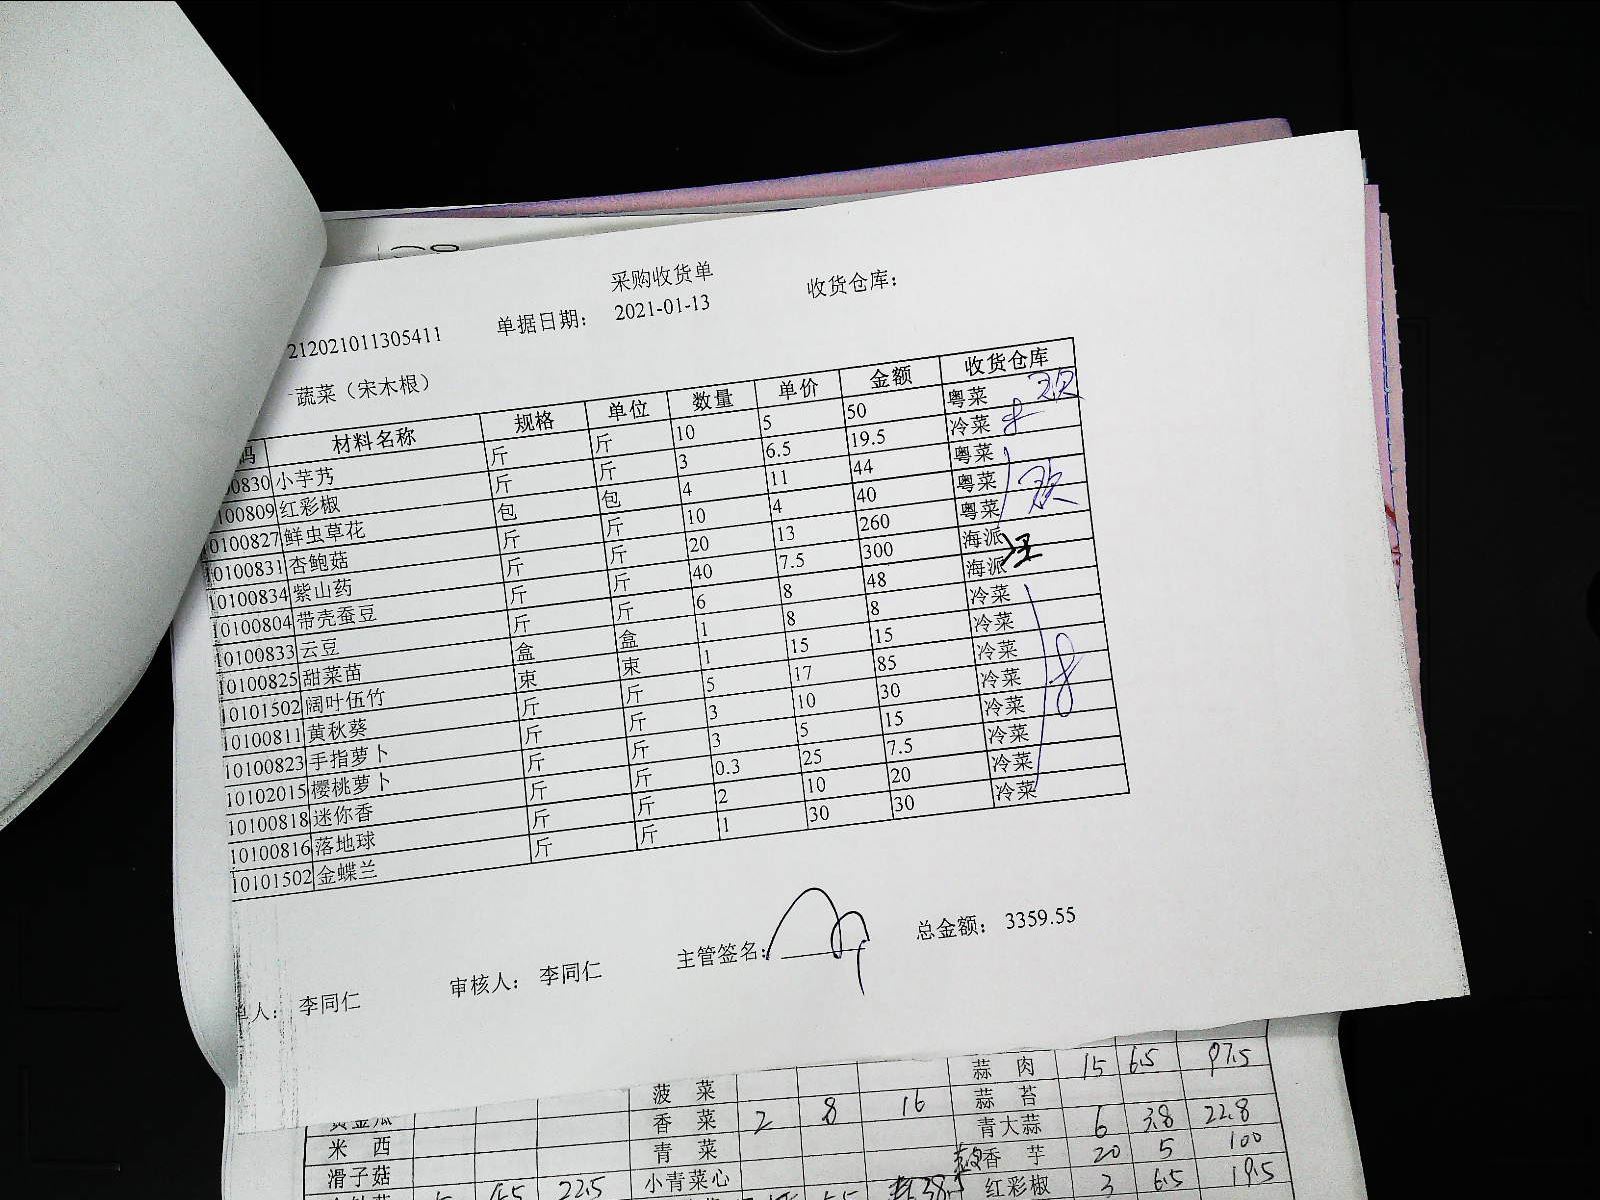 采购收货单
212021011305411 单据日期： 2021-01-13 收货仓库：
蔬菜（宋木根）
码 材料名称 规格 单位 数量 单价 金额 收货仓库
00830 小芋艿 斤 斤 10 5 50 粤菜
100809 红彩椒 斤 斤 3 6.5 19.5 冷菜
0100827 鲜虫草花 包 包 4 11 44 粤菜
10100831 杏鲍菇 斤 斤 10 4 40 粤菜
10100834 紫山药 斤 斤 20 13 260 粤菜
10100804 带壳蚕豆 斤 斤 40 7.5 300 海派
10100833 云豆 斤 斤 6 8 48 海派
10100825 甜菜苗 盒 盒 1 8 8 冷菜
10101502 阔叶伍竹 束 束 1 15 15 冷菜
10100811 黄秋葵 斤 斤 5 17 85 冷菜
10100823 手指萝卜 斤 斤 3 10 30 冷菜
10102015 樱桃萝卜 斤 斤 3 5 15 冷菜
10100818 迷你香 斤 斤 0.3 25 7.5 冷菜
10100816 落地球 斤 斤 2 10 20 冷菜
10101502 金蝶兰 斤 斤 1 30 30 冷菜
单人： 李同仁 审核人： 李同仁 主管签名： 总金额： 3359.55
蒜 肉 15 6.5 97.5
黄金瓜 菠 菜 蒜 苔
米 西 香 菜 2 8 16 青大蒜 6 3.8 22.8
滑子菇 青 菜 香 芋 20 5 100
22.5 小青菜心 红彩椒 3 6.5 19.5